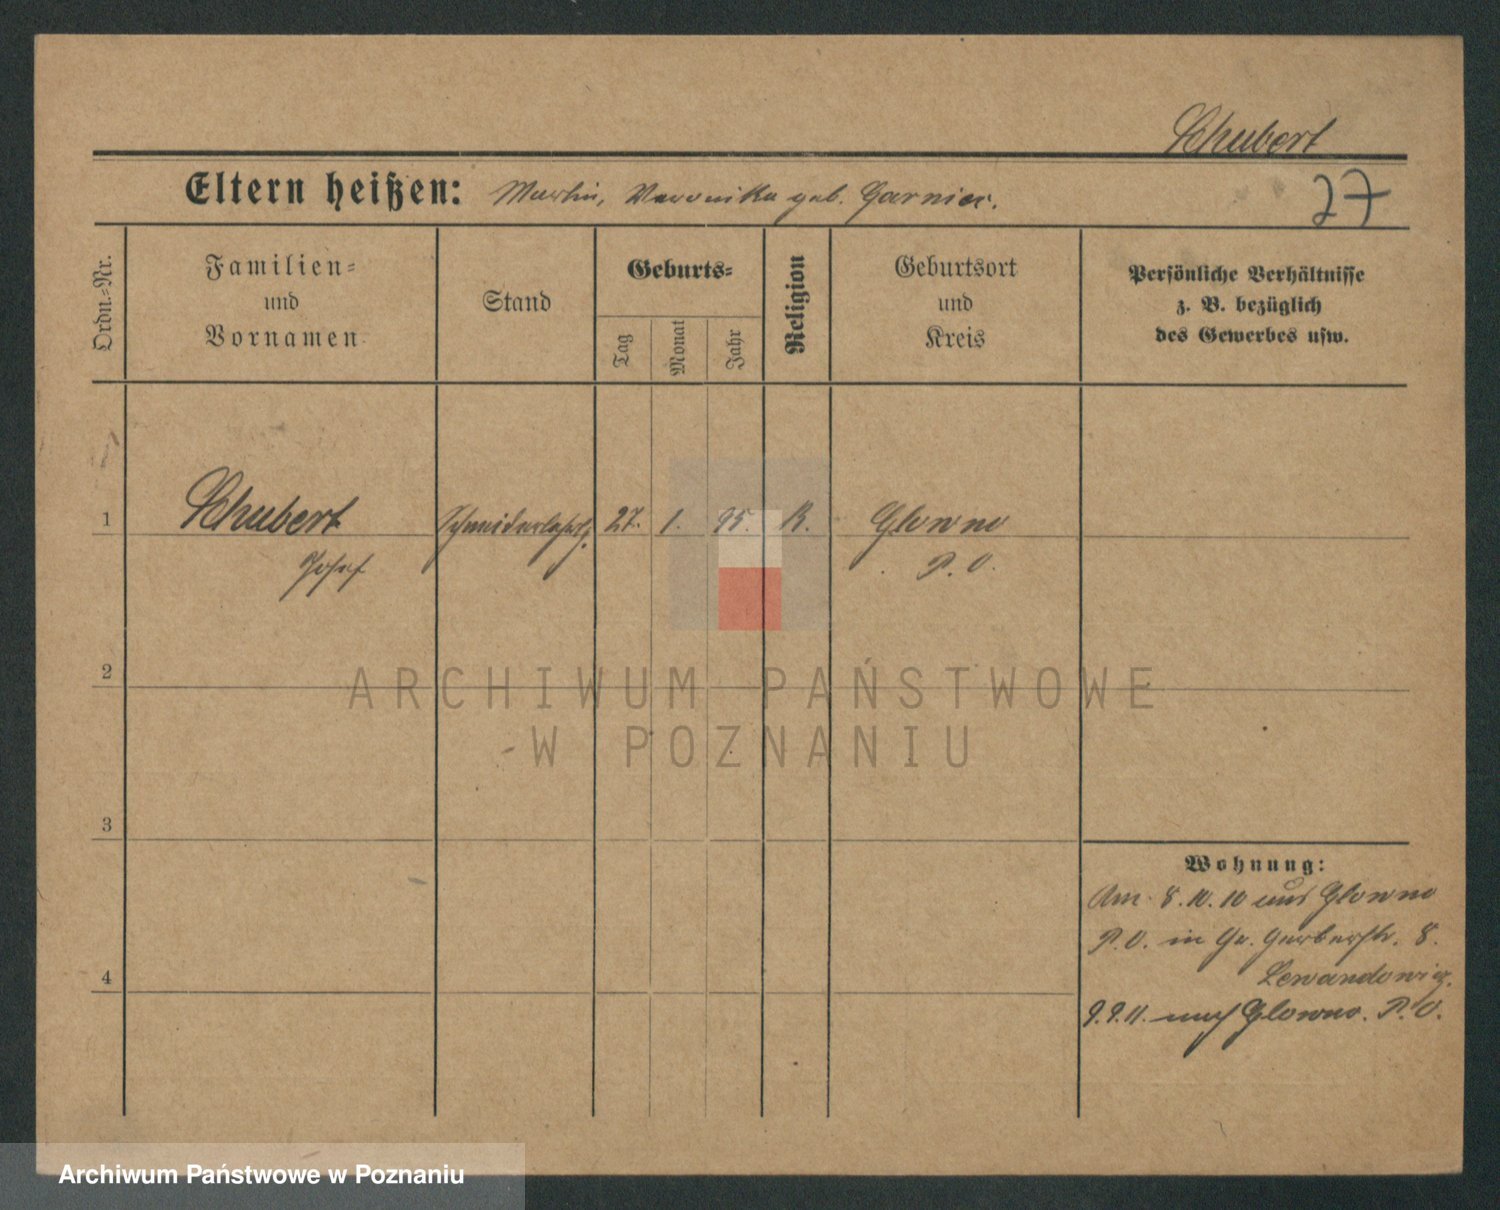 Schubert
Eltern heißen: Martin, Veronika geb. Garnier.
27
Ordn.-Nr.
Familien-
und
Vornamen
Stand
Geburts-
Tag
Monat
Jahr
Religion
Geburtsort
und
Kreis
Persönliche Verhältnisse
z. B. bezüglich
des Gewerbes usw.
1 Schubert Schneiderlehrl. 27. 1. 95. K. Glowno
Josef P. O.
2
ARCHIWUM PAŃSTWOWE
W POZNANIU
3
Wohnung:
Am 8.10.10 aus Glowno
P.O. in Gr. Gerberstr. 8.
4
9.9.11. nach Glowno. P.O.
Archiwum Państwowe w Poznaniu